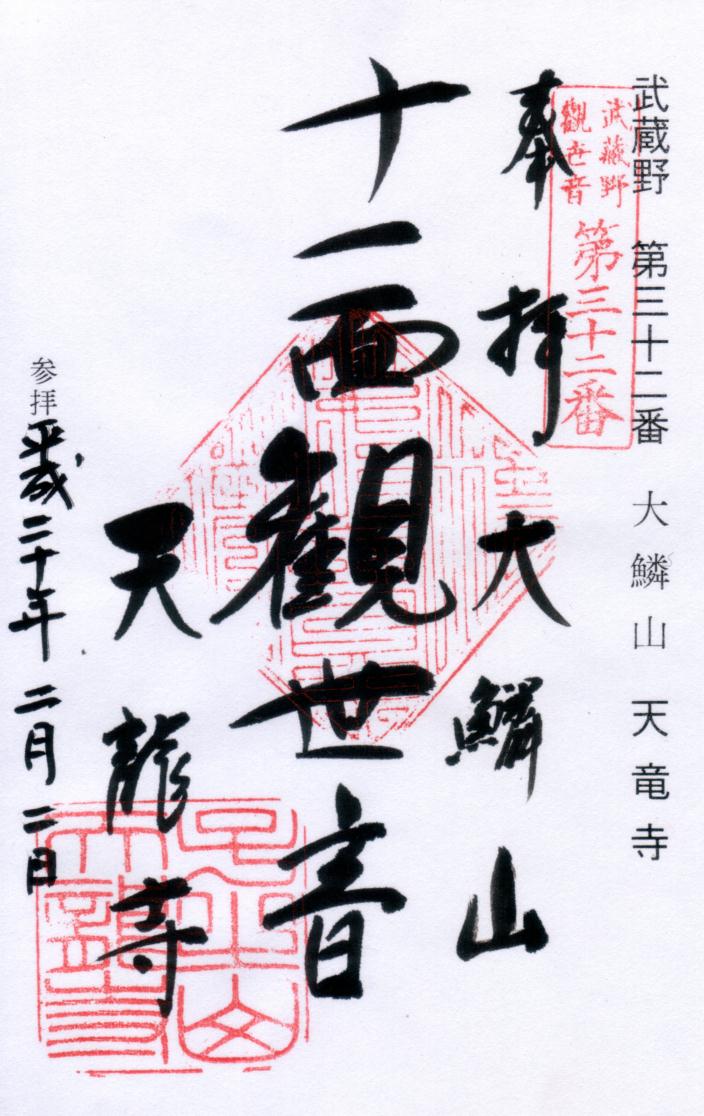 武蔵野 第三十二番 大鱗山 天竜寺
武蔵野
観世音
第三十二番
奉拝 大鱗山
十一面観世音
天龍寺
参拝 平成二十年二月二日